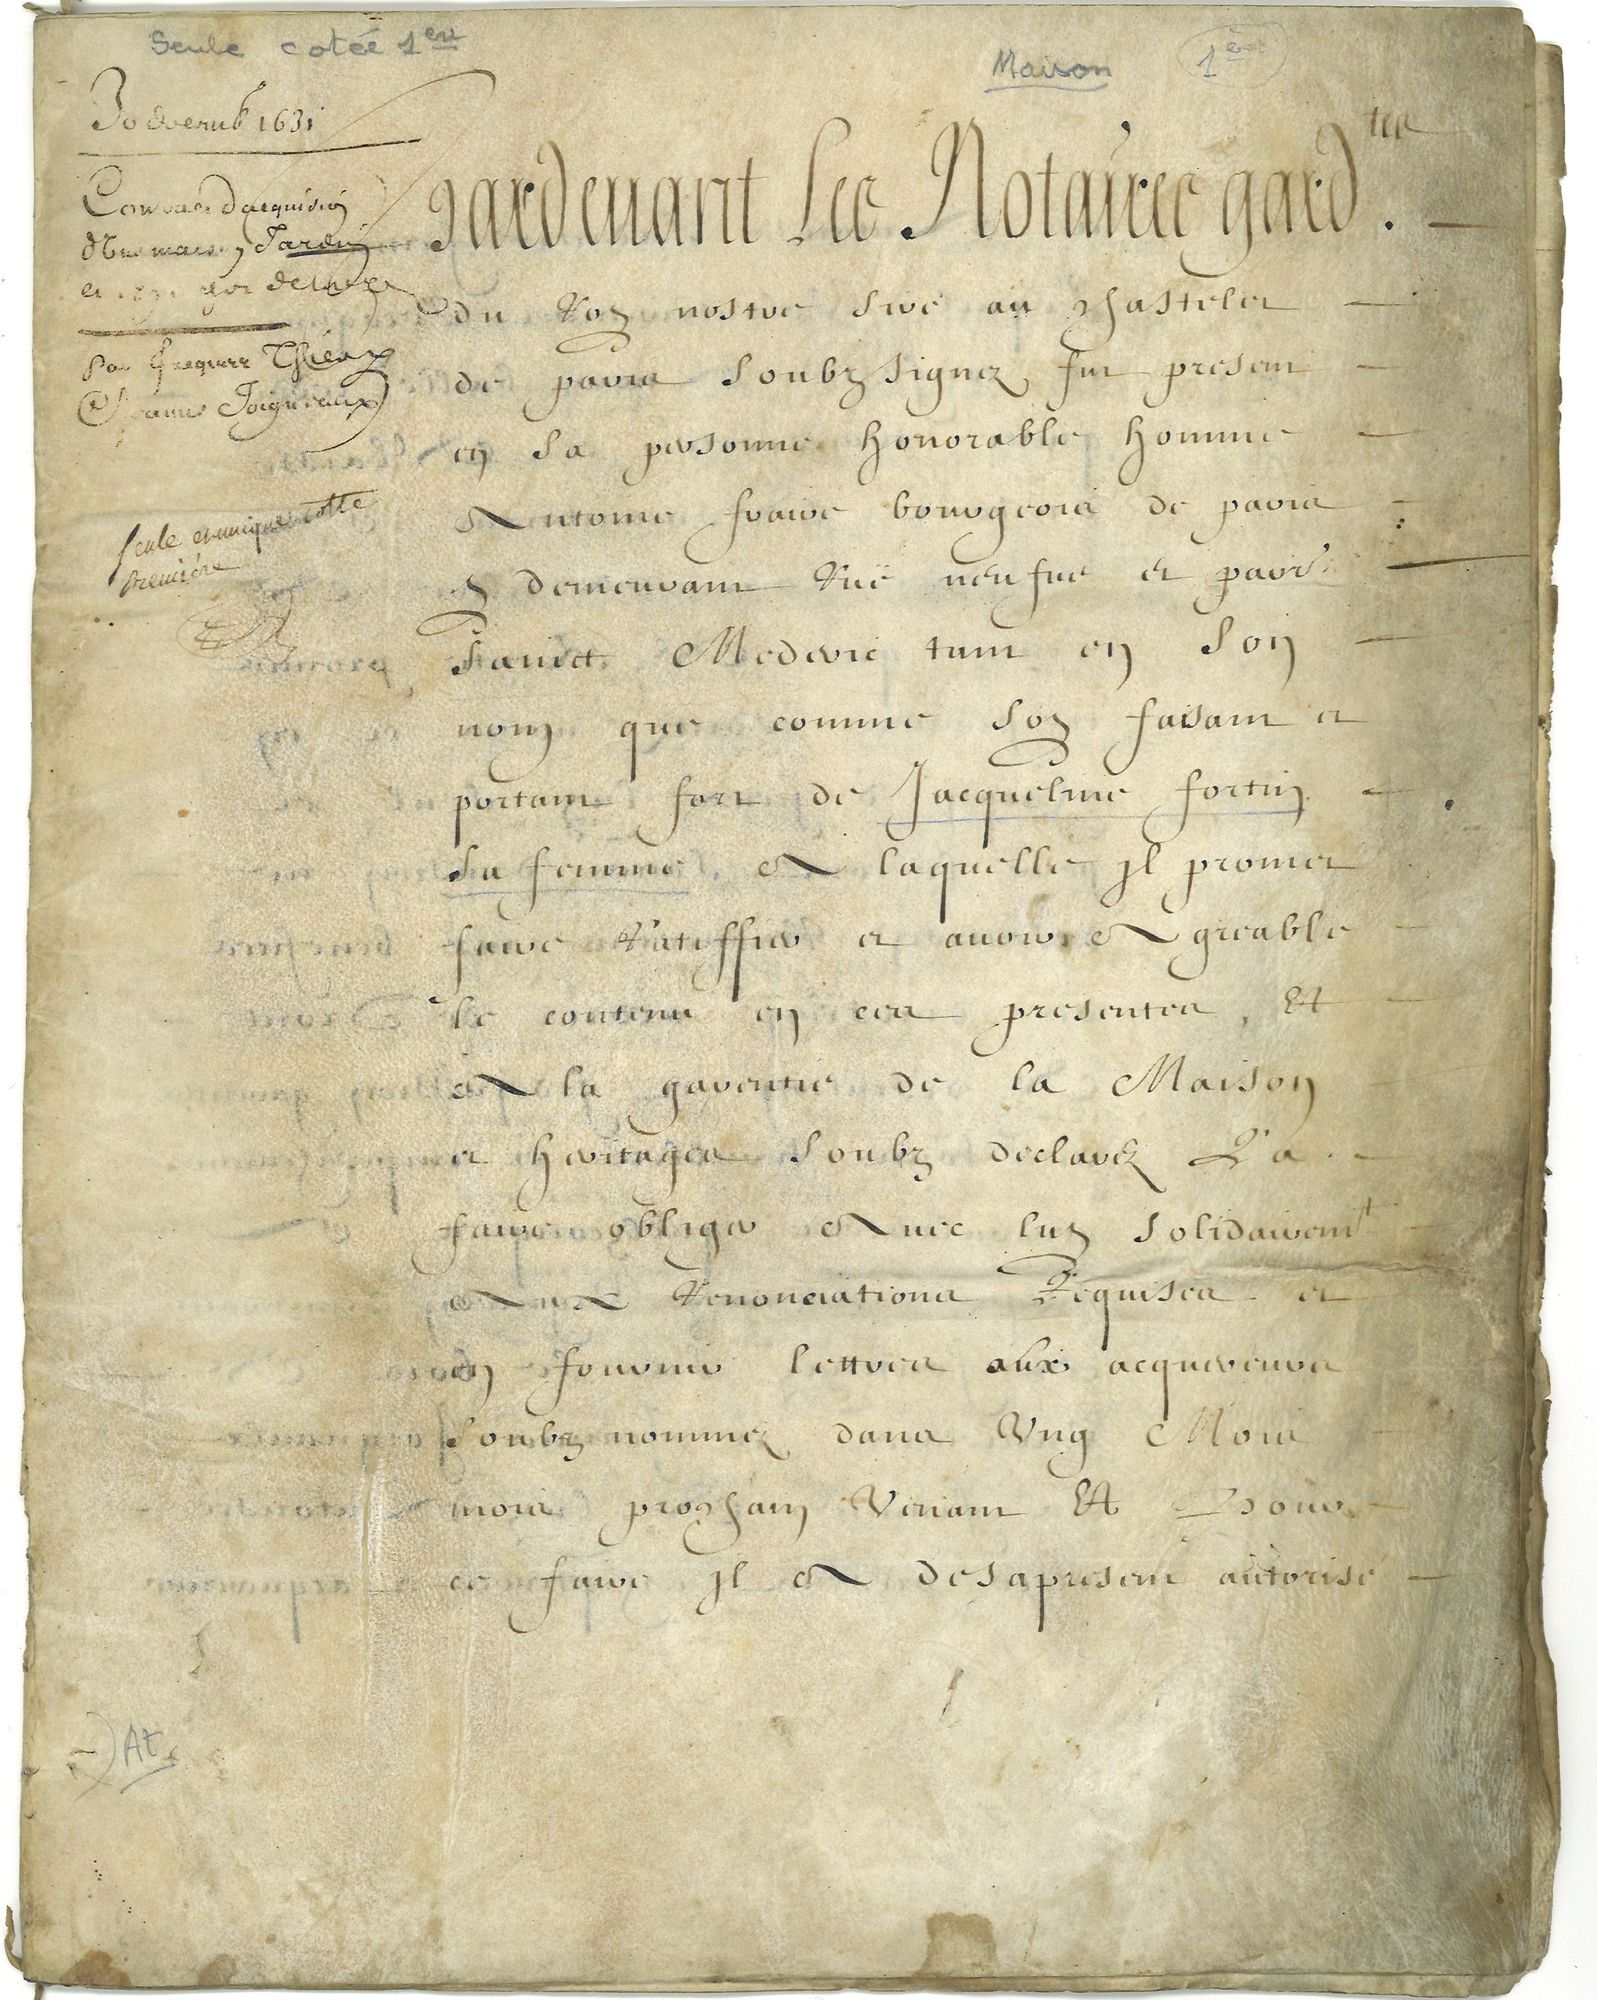 Seule cotée 1ere
Maison 1ere
30 decemb 1631
Contract d'acquision
d'une maison Jardin
et
Par Jacques
Joigneaux
seule et unique cotte
première
Pardevant Les Notaires gard tes
du Roy nostre sire au Chastelet
de paris soubzsignez fut present
en sa personne honorable homme
Antoine fraire bourgeois de paris
y demeurant Rue neufve et parr
sainct Mederic tant en son
nom que comme soy faisant et
portant fort de Jacqueline fortin
sa femme A laquelle Il promet
faire Ratiffier et avoir Agreable
le contenu en ces presentes, Et
A la garentie de la Maison
et heritages soubz declarez L'a
faire obliger Avec luy solidairemt
Aux Renonciations Requises et
en fournir lettres aux acquereurs
soubz nommez dans Ung Mois
mois prochain Venant Et Pour
ce faire Il A desapresent autorisé
At